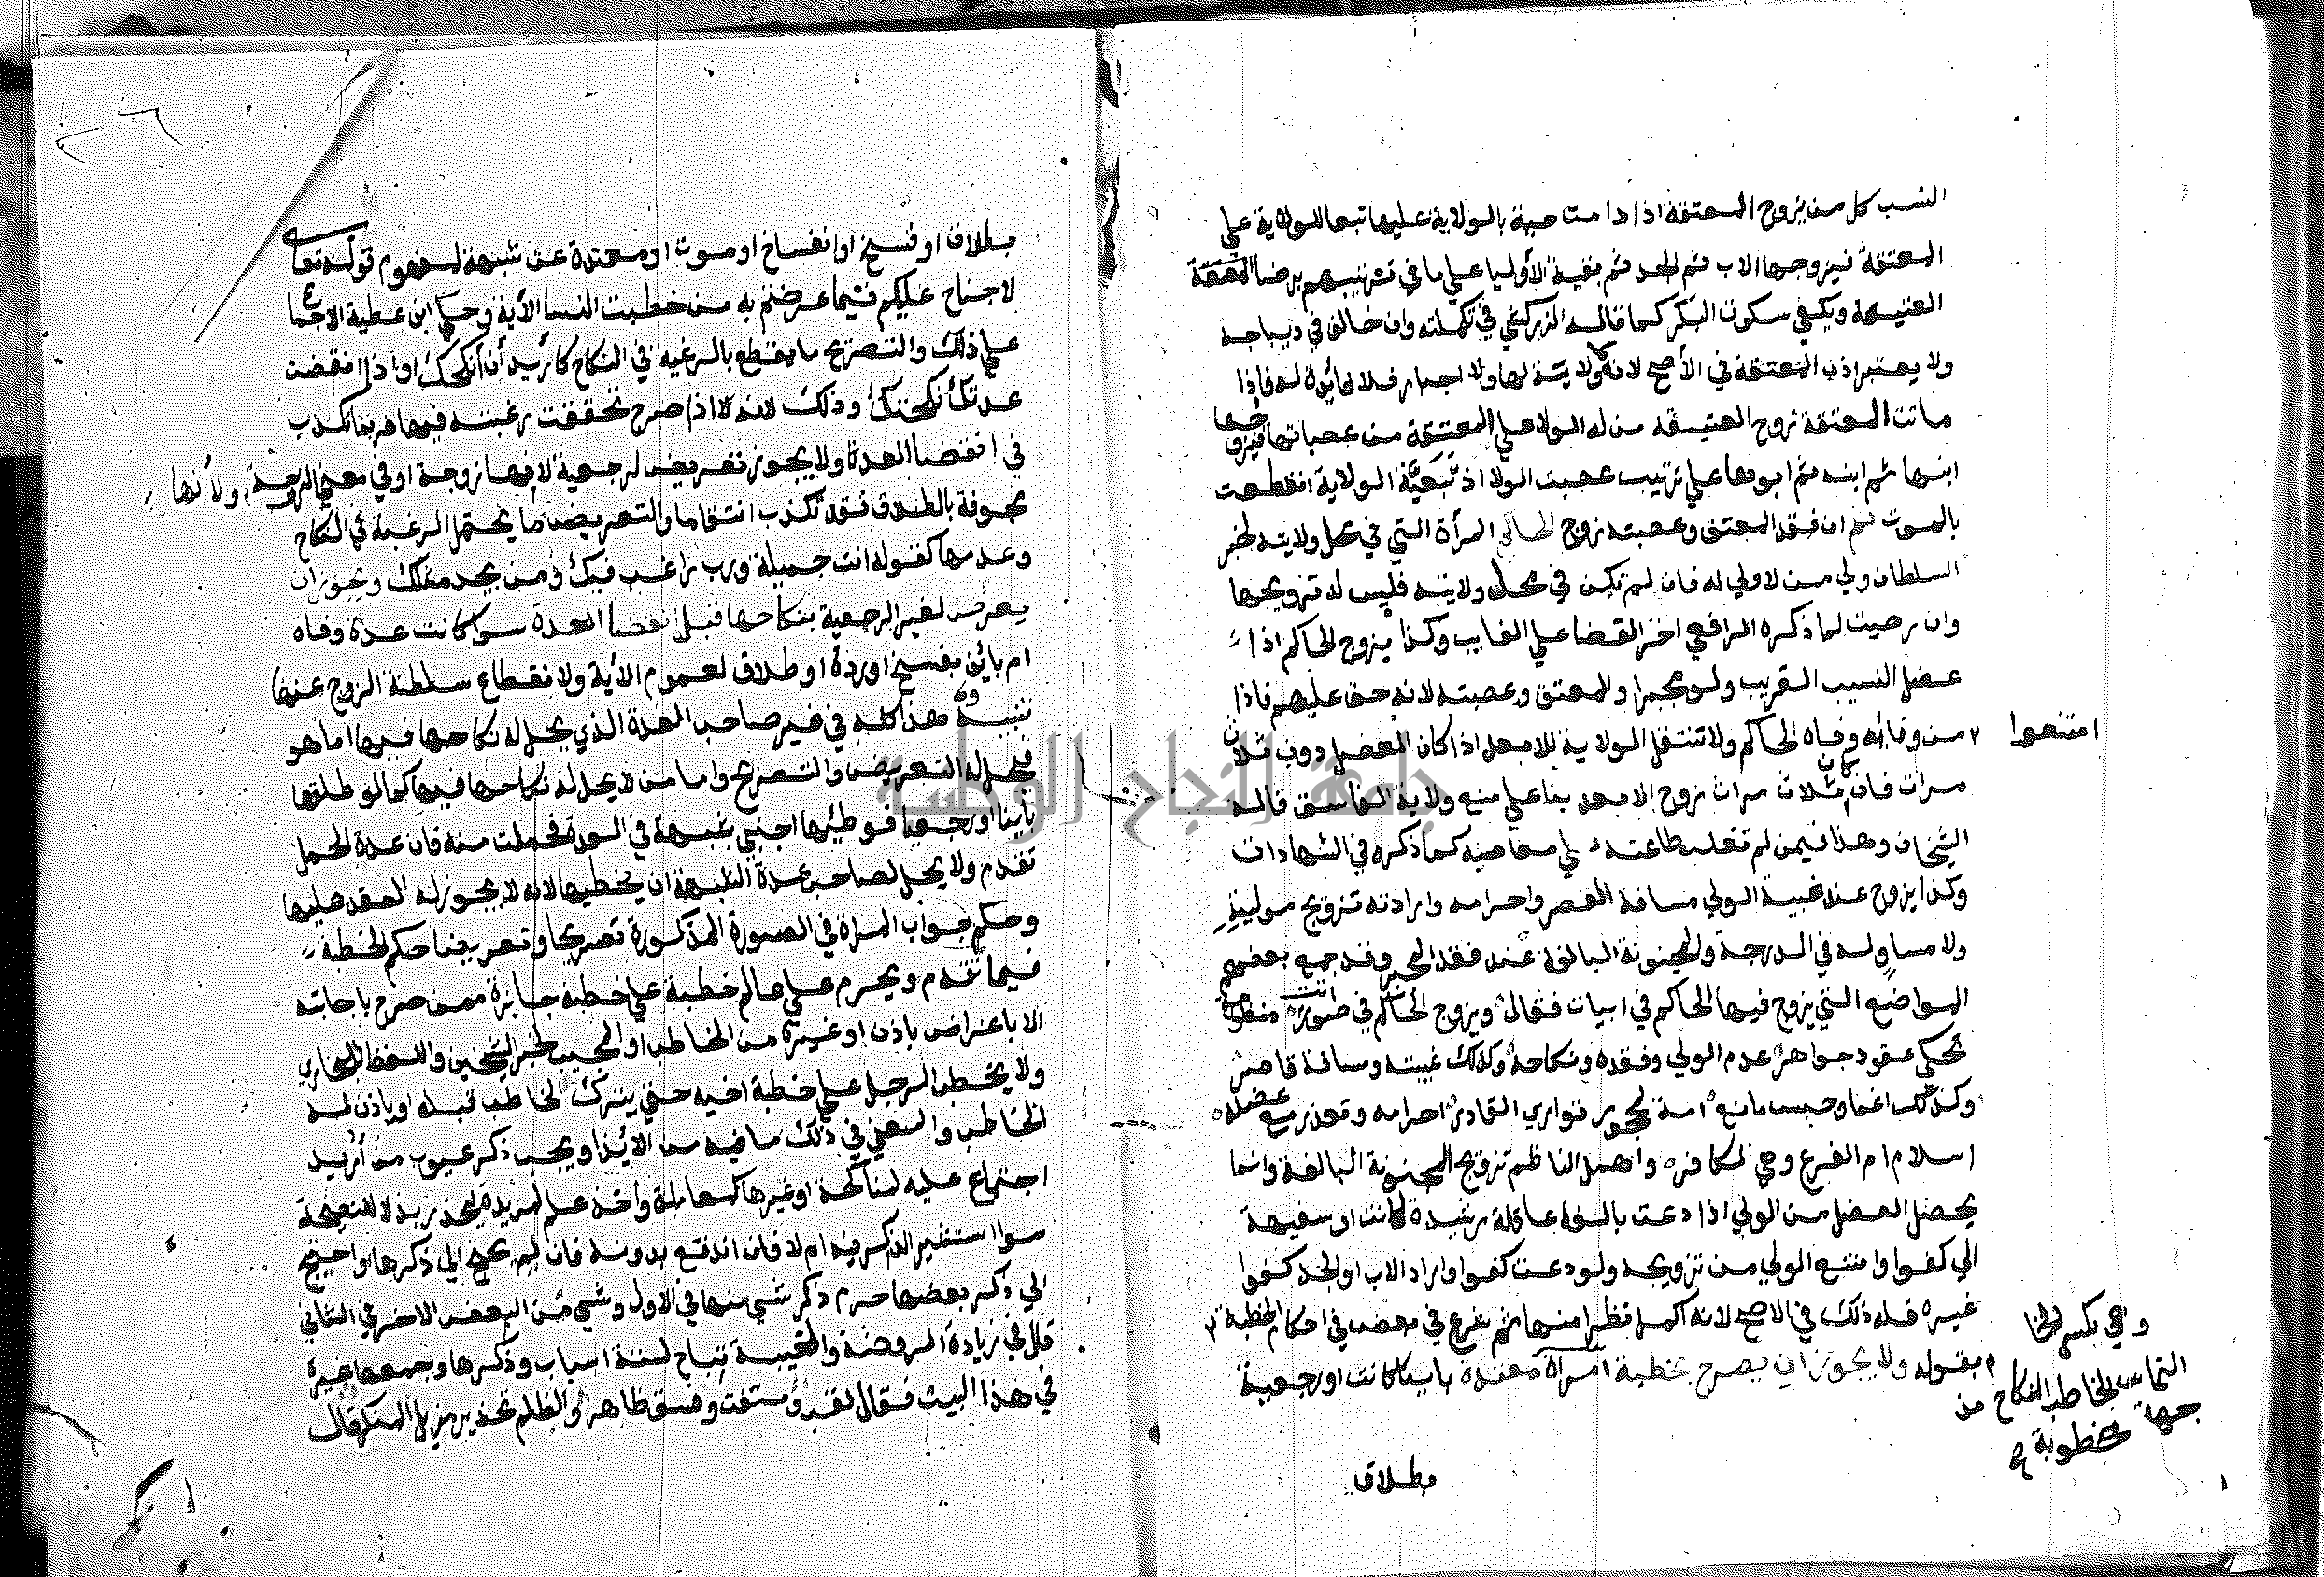 النسب كل من يزوج المعتقة اذا دامت حية بالولاية عليها تبعا للولاية علي
المعتقة فيزوجها الاب ثم الجد ثم بقية الأوليا علي ما في ترتيبهم برضا العتيقة
ويكفي سكوت البكر كما قاله الزركشي في تكملته وان خالف في ديباجه
ولا يعتبر اذن المعتقة في الأصح لانه لا ولاية لها ولا اجبار فلا فائدة له فاذا
ماتت المعتقة زوج العتيقه من له الولا علي المعتقة من عصباتها فيزوجها
ابنها ثم ابنه ثم ابوها علي ترتيب عصبة الولا اذ تبعية الولاية انقطعت
بالموت ثم ان فقد المعتق وعصبته زوج الحاكم المرأة التي في محل ولايته لخبر
السلطان ولي من لا ولي له فان لم تكن في محل ولايته فليس له تزويجها
وان رضيت لما ذكره الرافعي اخر القضا علي الغايب وكذا يزوج الحاكم اذا
عضل النسيب القريب ولو مجبرا والمعتق وعصبته لانه حق عليهم فاذا
امتنعوا
من وفائه وفاه الحاكم ولا تنتقل الولاية للابعد اذا كان العضل دون ثلاث
مرات فان كان ثلاث مرات زوج الابعد بنا علي منع ولاية الفاسق قاله
الشيخان وهذا فيمن لم تغلب طاعته علي معاصيه كما ذكره في الشهادات
وكذا يزوج عند غيبة الولي مسافة القصر واحرامه وارادته تزويج موليته
ولا مساو له في الدرجة والمجنونة البالغة عند فقد المجبر وقد جمع بعضهم
المواضع التي يزوج فيها الحاكم في ابيات فقال ويزوج الحاكم في صور اتت منظومة
تحكي عقود جواهر عدم الولي وفقده ونكاحه وكذلك غيبته ومسافة قاصر
وكذلك اغما وحبس مانع امة لمحجور تواري القادر احرامه وتعزز مع عضله
اسلام ام الفرع وهي لكافر واهمل الناظم تزويج المجنونة البالغة وانما
يحصل العضل من الولي اذا دعت بالغة عاقلة رشيدة كانت او سفيهة
الي كفوا وامتنع الولي من تزويجه ولو دعت كفوا واراد الاب او الجد كفوا
غيره فله ذلك في الاصح لانه اكمل نظرا منها ثم شرع في بعض في احكام الخطبة
وهي بكسر الخا
التماس الخاطب النكاح من
جهة مخطوبة
بقوله ولا يجوز ان يصرح بخطبة امرأة معتدة باينا كانت او رجعية
بطلاق
بطلاق او فسخ او انفساخ او موت او معتدة عن شبهة لمفهوم قوله تعالي
لا جناح عليكم فيما عرضتم به من خطبت النسا الأية وحكي ابن عطية الاجماع
علي ذلك والتصريح ما يقطع بالرغبة في النكاح كأريد أن أنكحك او اذا انقضت
عدتك نكحتك وذلك لانه اذا صرح تحققت رغبته فيها فربما تكذب
في انقضا العدة ولا يجوز تعريض لرجعية لانها زوجة او في معني الزوجة ولأنها
مجفوة بالطلاق فقد تكذب انتقاما والتعريض ما يحتمل الرغبة في النكاح
وعدمها كقوله انت جميلة ورب راغب فيك ومن يجد مثلك ويجوز ان
يعرض لغير الرجعية بنكاحها قبل انقضا العدة سوا كانت عدة وفاه
ام بائن بفسخ او ردة او طلاق لعموم الأية ولانقطاع سلطنة الزوج عنها
تنبيه هذا كله في غير صاحب العدة الذي يحل له نكاحها فيها اما هو
فيحل له التعريض والتصريح واما من لا يحل له نكاحها فيها كما لو طلقها
باينا او رجعيا فوطئها اجنبي بشبهة في العدة فحملت منه فان عدة الحمل
تقدم ولا يحل لصاحب عدة الشبهة ان يخطبها لانه لا يجوز له العقد عليها
وحكم جواب المرأة في الصورة المذكورة تصريحا وتعريضا حكم الخطبة
فيما تقدم ويحرم علي عالم خطبة علي خطبة جايزة ممن صرح باجابته
الا باعراض باذن او غيره من الخاطب او المجيب لخبر الشيخين واللفظ للبخاري
ولا يخطب الرجل علي خطبة اخيه حتي يترك الخاطب قبله او ياذن له
الخاطب والمعني في ذلك ما فيه من الايذا ويجب ذكر عيوب من أريد
اجتماع عليه لمناكحة او غيرها كمعاملة واخذ علم لمريده ليحذر بذلا للنصيحة
سوا استشير الذاكر فيه ام لا فان اندفع بدونه فان لم يحتج الي ذكرها واحتيج
الي ذكر بعضها حرم ذكر شي منها في الاول وشي من البعض الاخر في الثاني
قال في زيادة الروضة والغيبة تباح لستة اسباب وذكرها وجمعها غيره
في هذا البيت فقال لقب ومستفت وفسق ظاهر والظلم تحذير مزيل المنكر قال